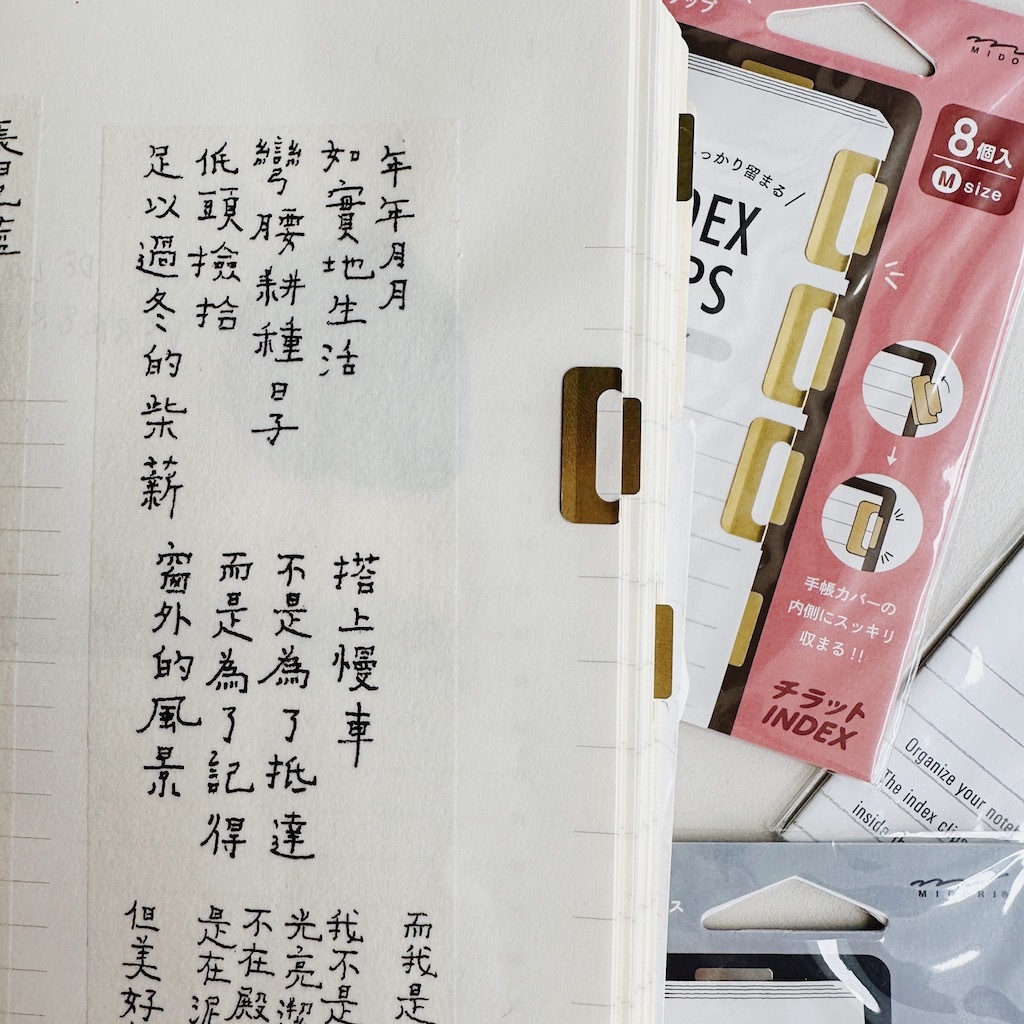 年年月月
如實地生活
彎腰耕種日子
低頭撿拾
足以過冬的柴薪
搭上慢車
不是為了抵達
而是為了記得
窗外的風景
而我是
我不是
光亮潔
不在殿
是在泥
但美好
っかり留まる
DEX
PS
8個入
M size
手帳カバーの
内側にスッキリ
収まる!!
チラット
INDEX
Organize your note
The index clips
inside th
MIDO
MIDORI
ス